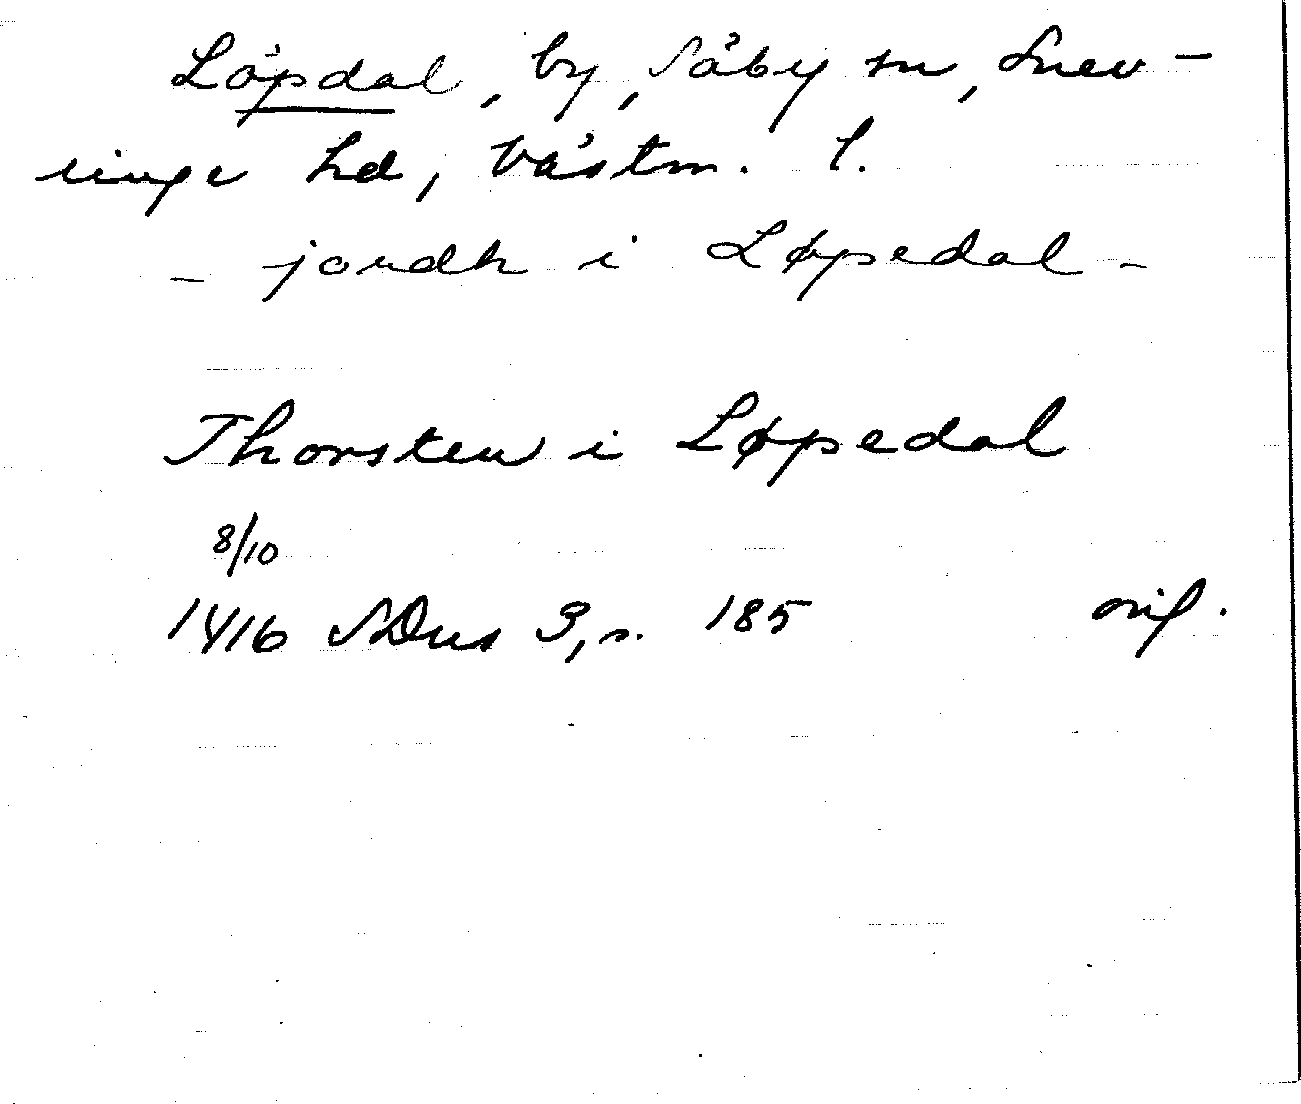 Löpdal, by, Säby sn, Snev-
ringe hd, Västm. l.
- jordh i Løpedal -
Thorsten i Løpedal
8/10
1416 SDns 3, s. 185 orig.